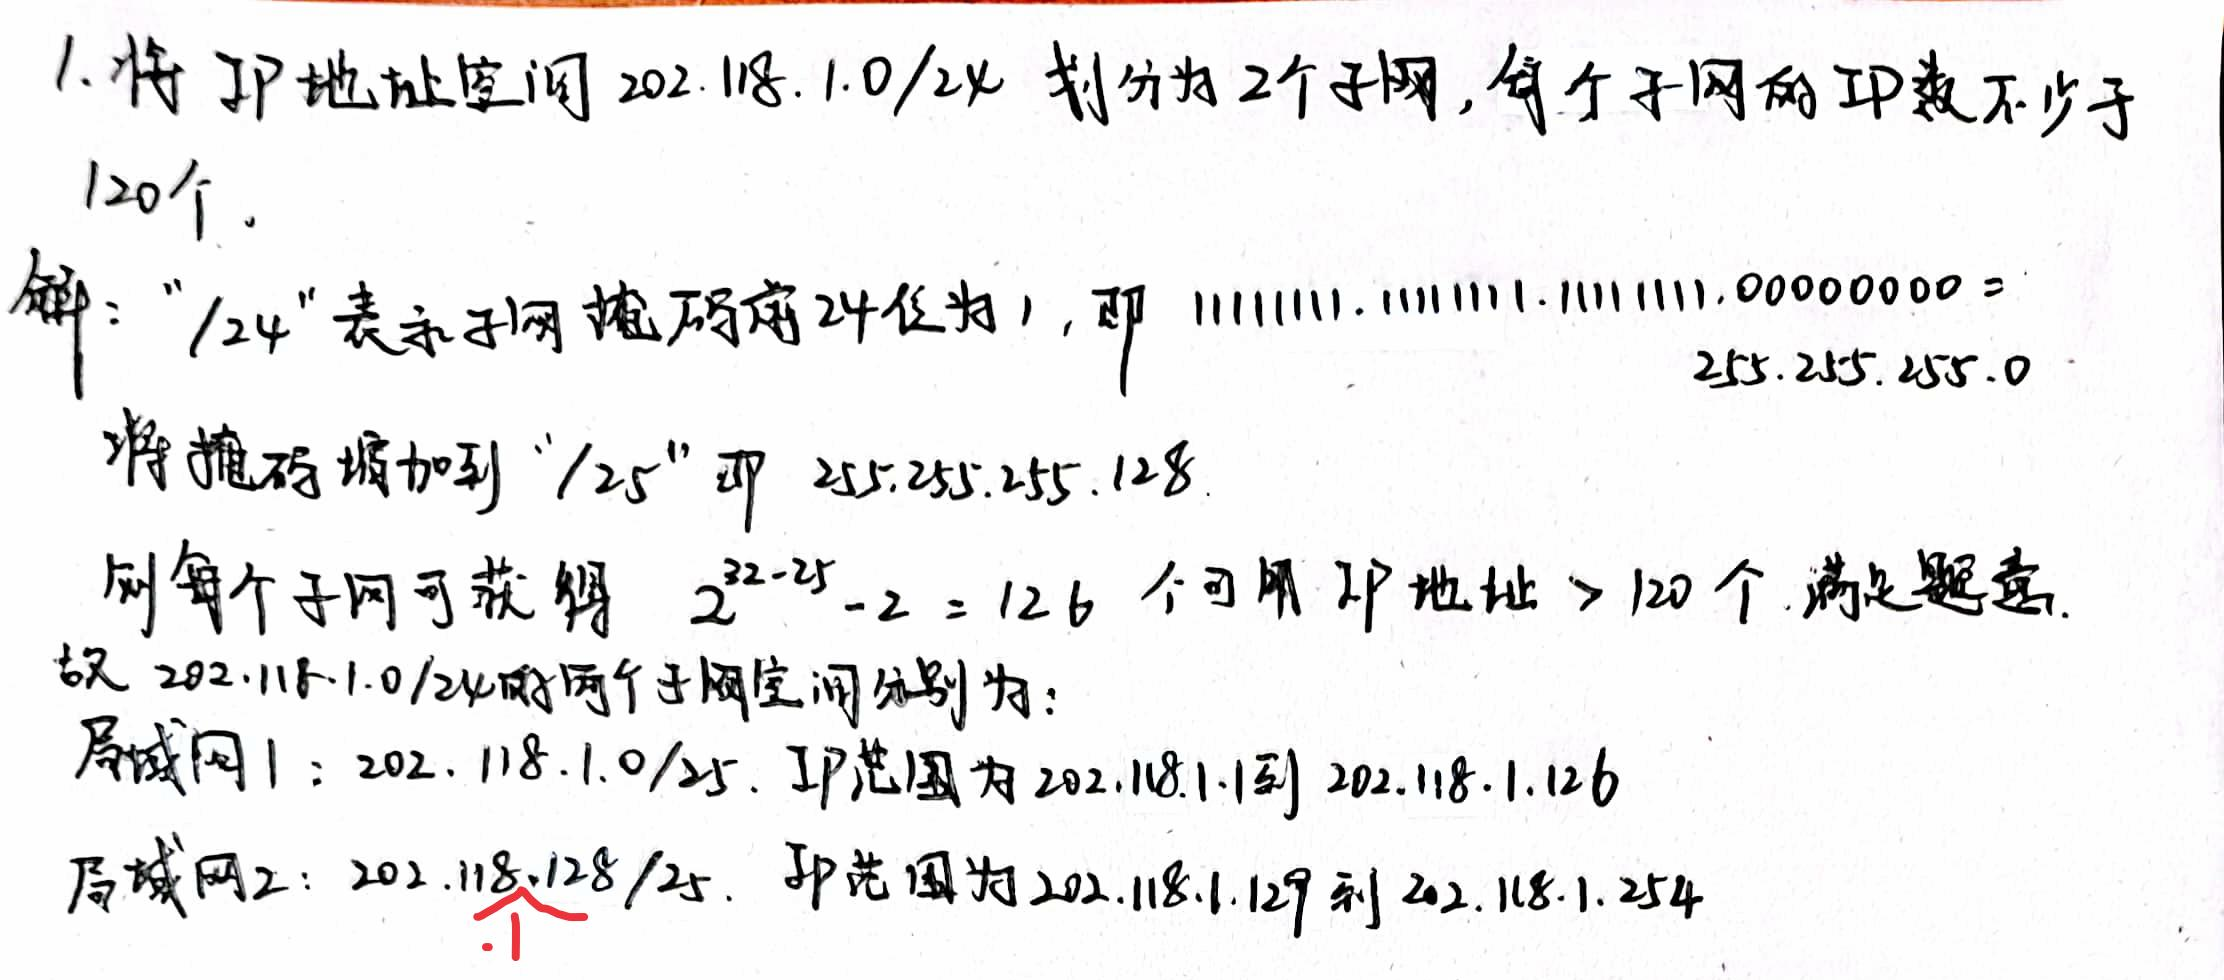 1. 将 IP 地址空间 202.118.1.0/24 划分为 2个子网,每个子网的 IP数不少于
120个。
解:“/24”表示子网掩码前24位为1,即 11111111.11111111.11111111.00000000 =
255.255.255.0
将掩码增加到“/25”即 255.255.255.128.
则每个子网可获得 2^{32-25} - 2 = 126 个可用 IP 地址 > 120 个.满足题意.
故 202.118.1.0/24的两个子网空间分别为:
局域网1:202.118.1.0/25. IP范围为202.118.1.1到 202.118.1.126
局域网2:202.118.128/25. IP范围为202.118.1.129到202.118.1.254
.1